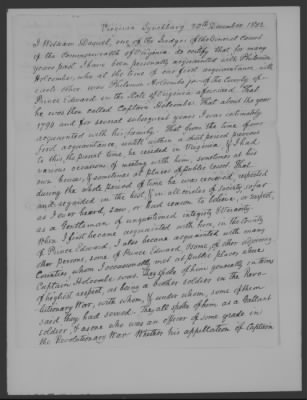 Virginia Lynchburg 20th December 1832
I William Daniel, one of the Judges of the General Court
of the Commonwealth of Virginia do certify that for many
years past I have been personally acquainted with Philemon
Holcombe, who at the time of our first acquaintance with
each other was Philemon Holcombe jun. of the County of
Prince Edward in the State of Virginia aforesaid. That
he was then called Captain Holcombe. That about the year
1794 and for several subsequent years I was intimately
acquainted with his family. That from the time of our
first acquaintance, until within a short period previous
to this, the present time, he resided in Virginia, & I had
various occasions of meeting with him, sometimes at his
own house, & sometimes at places of public resort. That
during the whole period of time he was received, respected
and regarded in the best, & in all circles of society so far
as I ever heard, saw, or had reason to believe, or suspect,
as a Gentleman of unquestioned integrity & veracity.
When I first became acquainted with him, in the County
of Prince Edward, I also became acquainted with many
other persons, some of Prince Edward, some of other adjoining
Counties whom I occasionally met at public places where
Captain Holcombe was. They spoke of him generally in terms
of highest respect, as being a brother soldier in the Revo-
lutionary War, with whom, & under whom, some of them
said they had served. They all spoke of him as a Gallant
soldier, & as one who was an officer of some grade in
the Revolutionary War. Whether his appellation of Captain